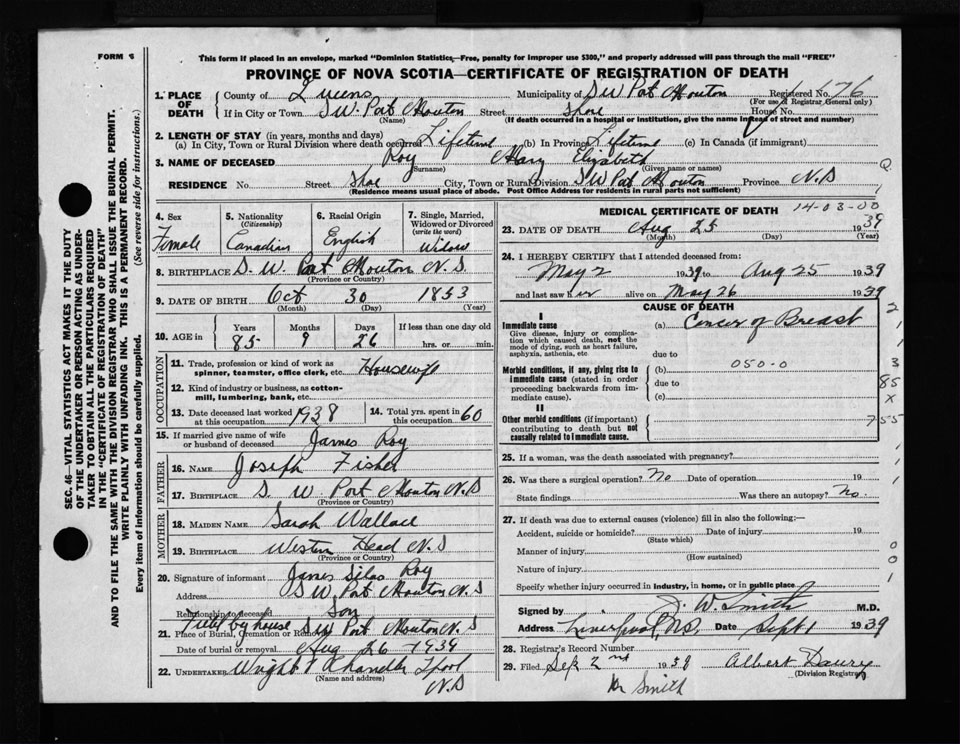 FORM
This form if placed in an envelope, marked "Dominion Statistics,—Free, penalty for improper use $300," and properly addressed will pass through the mail "FREE"
PROVINCE OF NOVA SCOTIA—CERTIFICATE OF REGISTRATION OF DEATH
1. PLACE OF DEATH County of Queens Municipality of S W Port Mouton Registered No. 176
(For use of Registrar General only)
If in City or Town S.W. Port Mouton Street Shore House No.
(Name) (If death occurred in a hospital or institution, give the name instead of street and number)
2. LENGTH OF STAY (in years, months and days)
(a) In City, Town or Rural Division where death occurred Lifetime (b) In Province Lifetime (c) In Canada (if immigrant)
3. NAME OF DECEASED Roy Mary Elizabeth
(Surname) (Given name or names)
RESIDENCE No. Street Shore City, Town or Rural Division S W Port Mouton Province N.S
(Residence means usual place of abode. Post Office Address for residents in rural parts not sufficient)
4. Sex Female
5. Nationality (Citizenship) Canadian
6. Racial Origin English
7. Single, Married, Widowed or Divorced (write the word) Widow
8. BIRTHPLACE S. W. Port Mouton N. S.
(Province or Country)
9. DATE OF BIRTH Oct 30 1853
(Month) (Day) (Year)
10. AGE in Years 85 Months 9 Days 26 If less than one day old hrs. or min.
OCCUPATION
11. Trade, profession or kind of work as spinner, teamster, office clerk, etc. Housewife
12. Kind of industry or business, as cotton-mill, lumbering, bank, etc.
13. Date deceased last worked at this occupation 1938 14. Total yrs. spent in this occupation 60
15. If married give name of wife or husband of deceased James Roy
FATHER
16. NAME Joseph Fisher
17. BIRTHPLACE S. W. Port Mouton N.S
(Province or Country)
MOTHER
18. MAIDEN NAME Sarah Wallace
19. BIRTHPLACE Western Head N.S
(Province or Country)
20. Signature of informant James Silas Roy
Address S W. Port Mouton N.S
Relationship to deceased Son
Field by house
21. Place of Burial, Cremation or Removal S W Port Mouton N.S
Date of burial or removal Aug 26 - 1939
22. UNDERTAKER Wright Chandler
N.S
(Name and address)
MEDICAL CERTIFICATE OF DEATH 14-03-00
23. DATE OF DEATH Aug 25 1939
(Month) (Day) (Year)
24. I HEREBY CERTIFY that I attended deceased from:
May 2 1939 to Aug 25 1939
and last saw her alive on May 26 1939
CAUSE OF DEATH
I
Immediate cause
Give disease, injury or complication which caused death, not the mode of dying, such as heart failure, asphyxia, asthenia, etc
(a) Cancer of Breast
due to
Morbid conditions, if any, giving rise to immediate cause (stated in order proceeding backwards from immediate cause).
(b) 050-0
due to
(c)
II
Other morbid conditions (if important) contributing to death but not causally related to immediate cause.
25. If a woman, was the death associated with pregnancy?
26. Was there a surgical operation? No Date of operation 19
State findings Was there an autopsy? No.
27. If death was due to external causes (violence) fill in also the following:—
Accident, suicide or homicide? Date of injury 19
(State which)
Manner of injury
(How sustained)
Nature of injury
Specify whether injury occurred in industry, in home, or in public place
Signed by J. W. Smith M.D.
Address Liverpool N.S, Date Sept 1 1939
28. Registrar's Record Number
29. Filed Sep 2nd 1939 Albert
(Division Registrar)
Dr Smith
2
1
1
3
85
X
755
1
1
0
0
1
SEC. 46—VITAL STATISTICS ACT MAKES IT THE DUTY
OF THE UNDERTAKER OR PERSON ACTING AS UNDER-
TAKER TO OBTAIN ALL THE PARTICULARS REQUIRED
IN THE "CERTIFICATE OF REGISTRATION OF DEATH"
AND TO FILE THE SAME WITH THE DIVISION REGISTRAR WHO SHALL ISSUE THE BURIAL PERMIT.
WRITE PLAINLY WITH UNFADING INK. THIS IS A PERMANENT RECORD.
Every item of information should be carefully supplied. (See reverse side for instructions.)